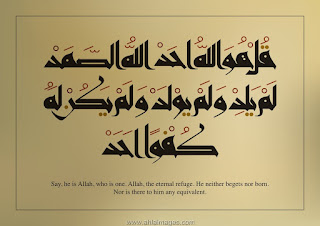 قُلْ هُوَ اللَّهُ أَحَدٌ اللَّهُ الصَّمَدُ
لَمْ يَلِدْ وَلَمْ يُولَدْ وَلَمْ يَكُن لَّهُ
كُفُوًا أَحَدٌ
Say, he is Allah, who is one. Allah, the eternal refuge. He neither begets nor born.
Nor is there to him any equivalent.
www.ahlaimages.com